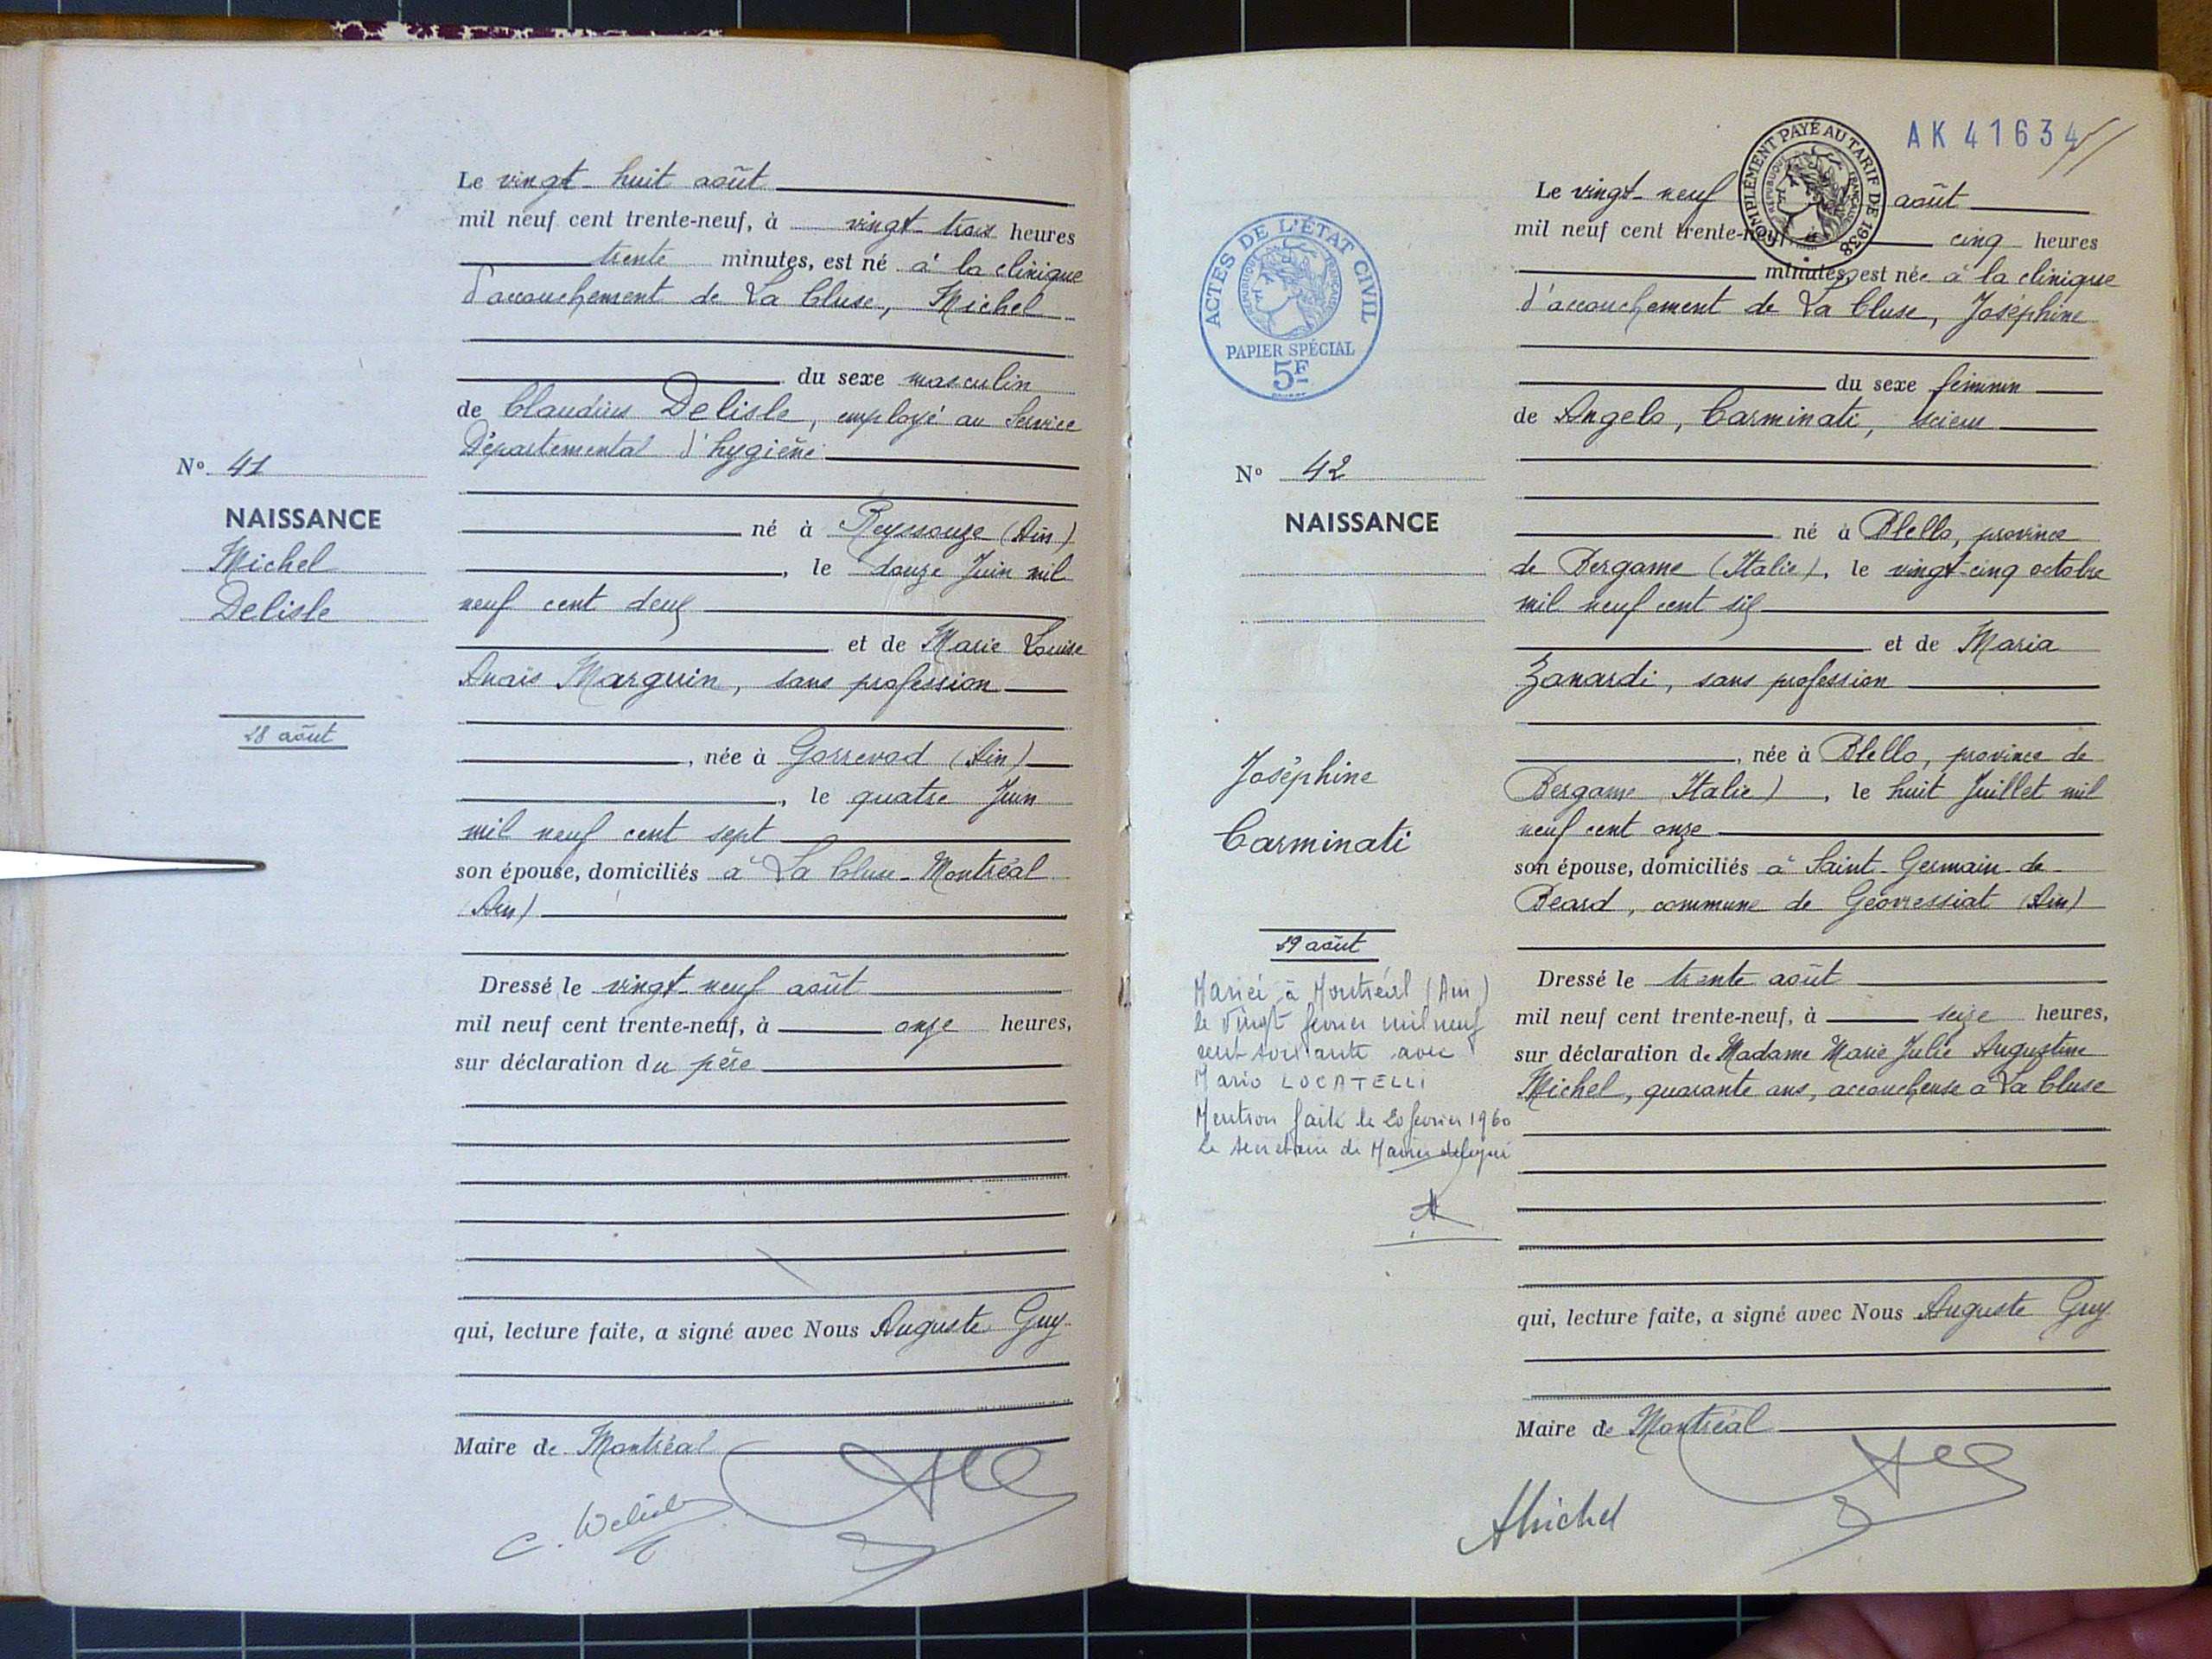 Le vingt-huit août
mil neuf cent trente-neuf, à vingt-trois heures
trente minutes, est né à la clinique
d'accouchement de La Cluse, Michel
du sexe masculin
de Claudius Delisle, employé au Service
Départemental d'hygiène
né à Reyssouze (Ain)
, le douze Juin mil
neuf cent deux
et de Marie Louise
Anaïs Marguin, sans profession
, née à Gorrevod (Ain)
, le quatre Juin
mil neuf cent sept
son épouse, domiciliés à La Cluse-Montréal
(Ain)
Dressé le vingt-neuf août
mil neuf cent trente-neuf, à onze heures,
sur déclaration du père
qui, lecture faite, a signé avec Nous Auguste Guy
Maire de Montréal
C. Delisle
N° 41
NAISSANCE
Michel
Delisle
28 août
AK 41634
COMPLÉMENT PAYÉ AU TARIF DE 1938
RÉPUBLIQUE FRANÇAISE
ACTES DE L'ÉTAT CIVIL
RÉPUBLIQUE FRANÇAISE
PAPIER SPÉCIAL
5F
Le vingt-neuf août
mil neuf cent trente-neuf, à cinq heures
minutes, est née à la clinique
d'accouchement de La Cluse, Joséphine
du sexe féminin
de Angelo, Carminati, scieur
né à Blello, province
de Bergame (Italie), le vingt-cinq octobre
mil neuf cent six
et de Maria
Zanardi, sans profession
, née à Blello, province de
Bergame Italie), le huit Juillet mil
neuf cent onze
son épouse, domiciliés à Saint-Germain-de-
Béard, commune de Géovressiat (Ain)
Dressé le trente août
mil neuf cent trente-neuf, à seize heures,
sur déclaration de Madame Marie Julie Augustine
Michel, quarante ans, accoucheuse à La Cluse
qui, lecture faite, a signé avec Nous Auguste Guy
Maire de Montréal
AMichel
N° 42
NAISSANCE
Joséphine
Carminati
29 août
Mariée à Montréal (Ain)
le vingt février mil neuf
cent soixante avec
Mario LOCATELLI
Mention faite le 20 février 1960
Le secrétaire de Mairie délégué